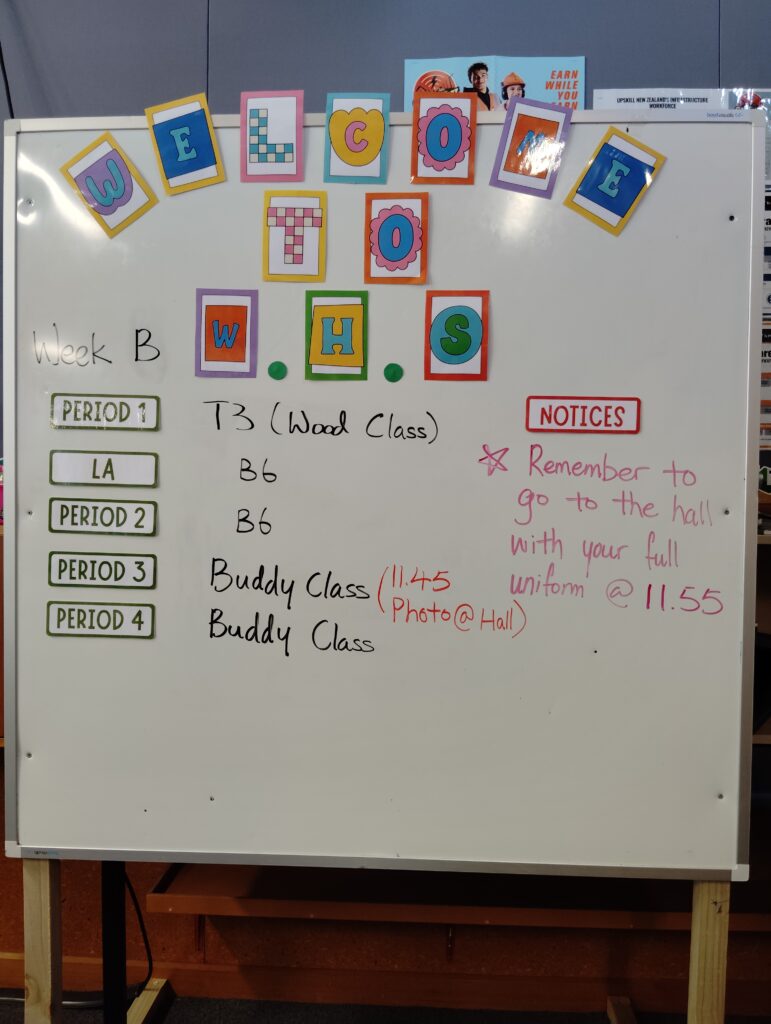 EARN
WHILE
YOU
EARN
UPSKILL NEW ZEALAND'S INFRASTRUCTURE
WORKFORCE
WELCOME
TO
W.H.S
Week B
PERIOD 1 T3 (Wood Class)
LA B6
PERIOD 2 B6
PERIOD 3 Buddy Class (11.45
Photo@Hall)
PERIOD 4 Buddy Class
NOTICES
Remember to
go to the hall
with your full
uniform @ 11.55